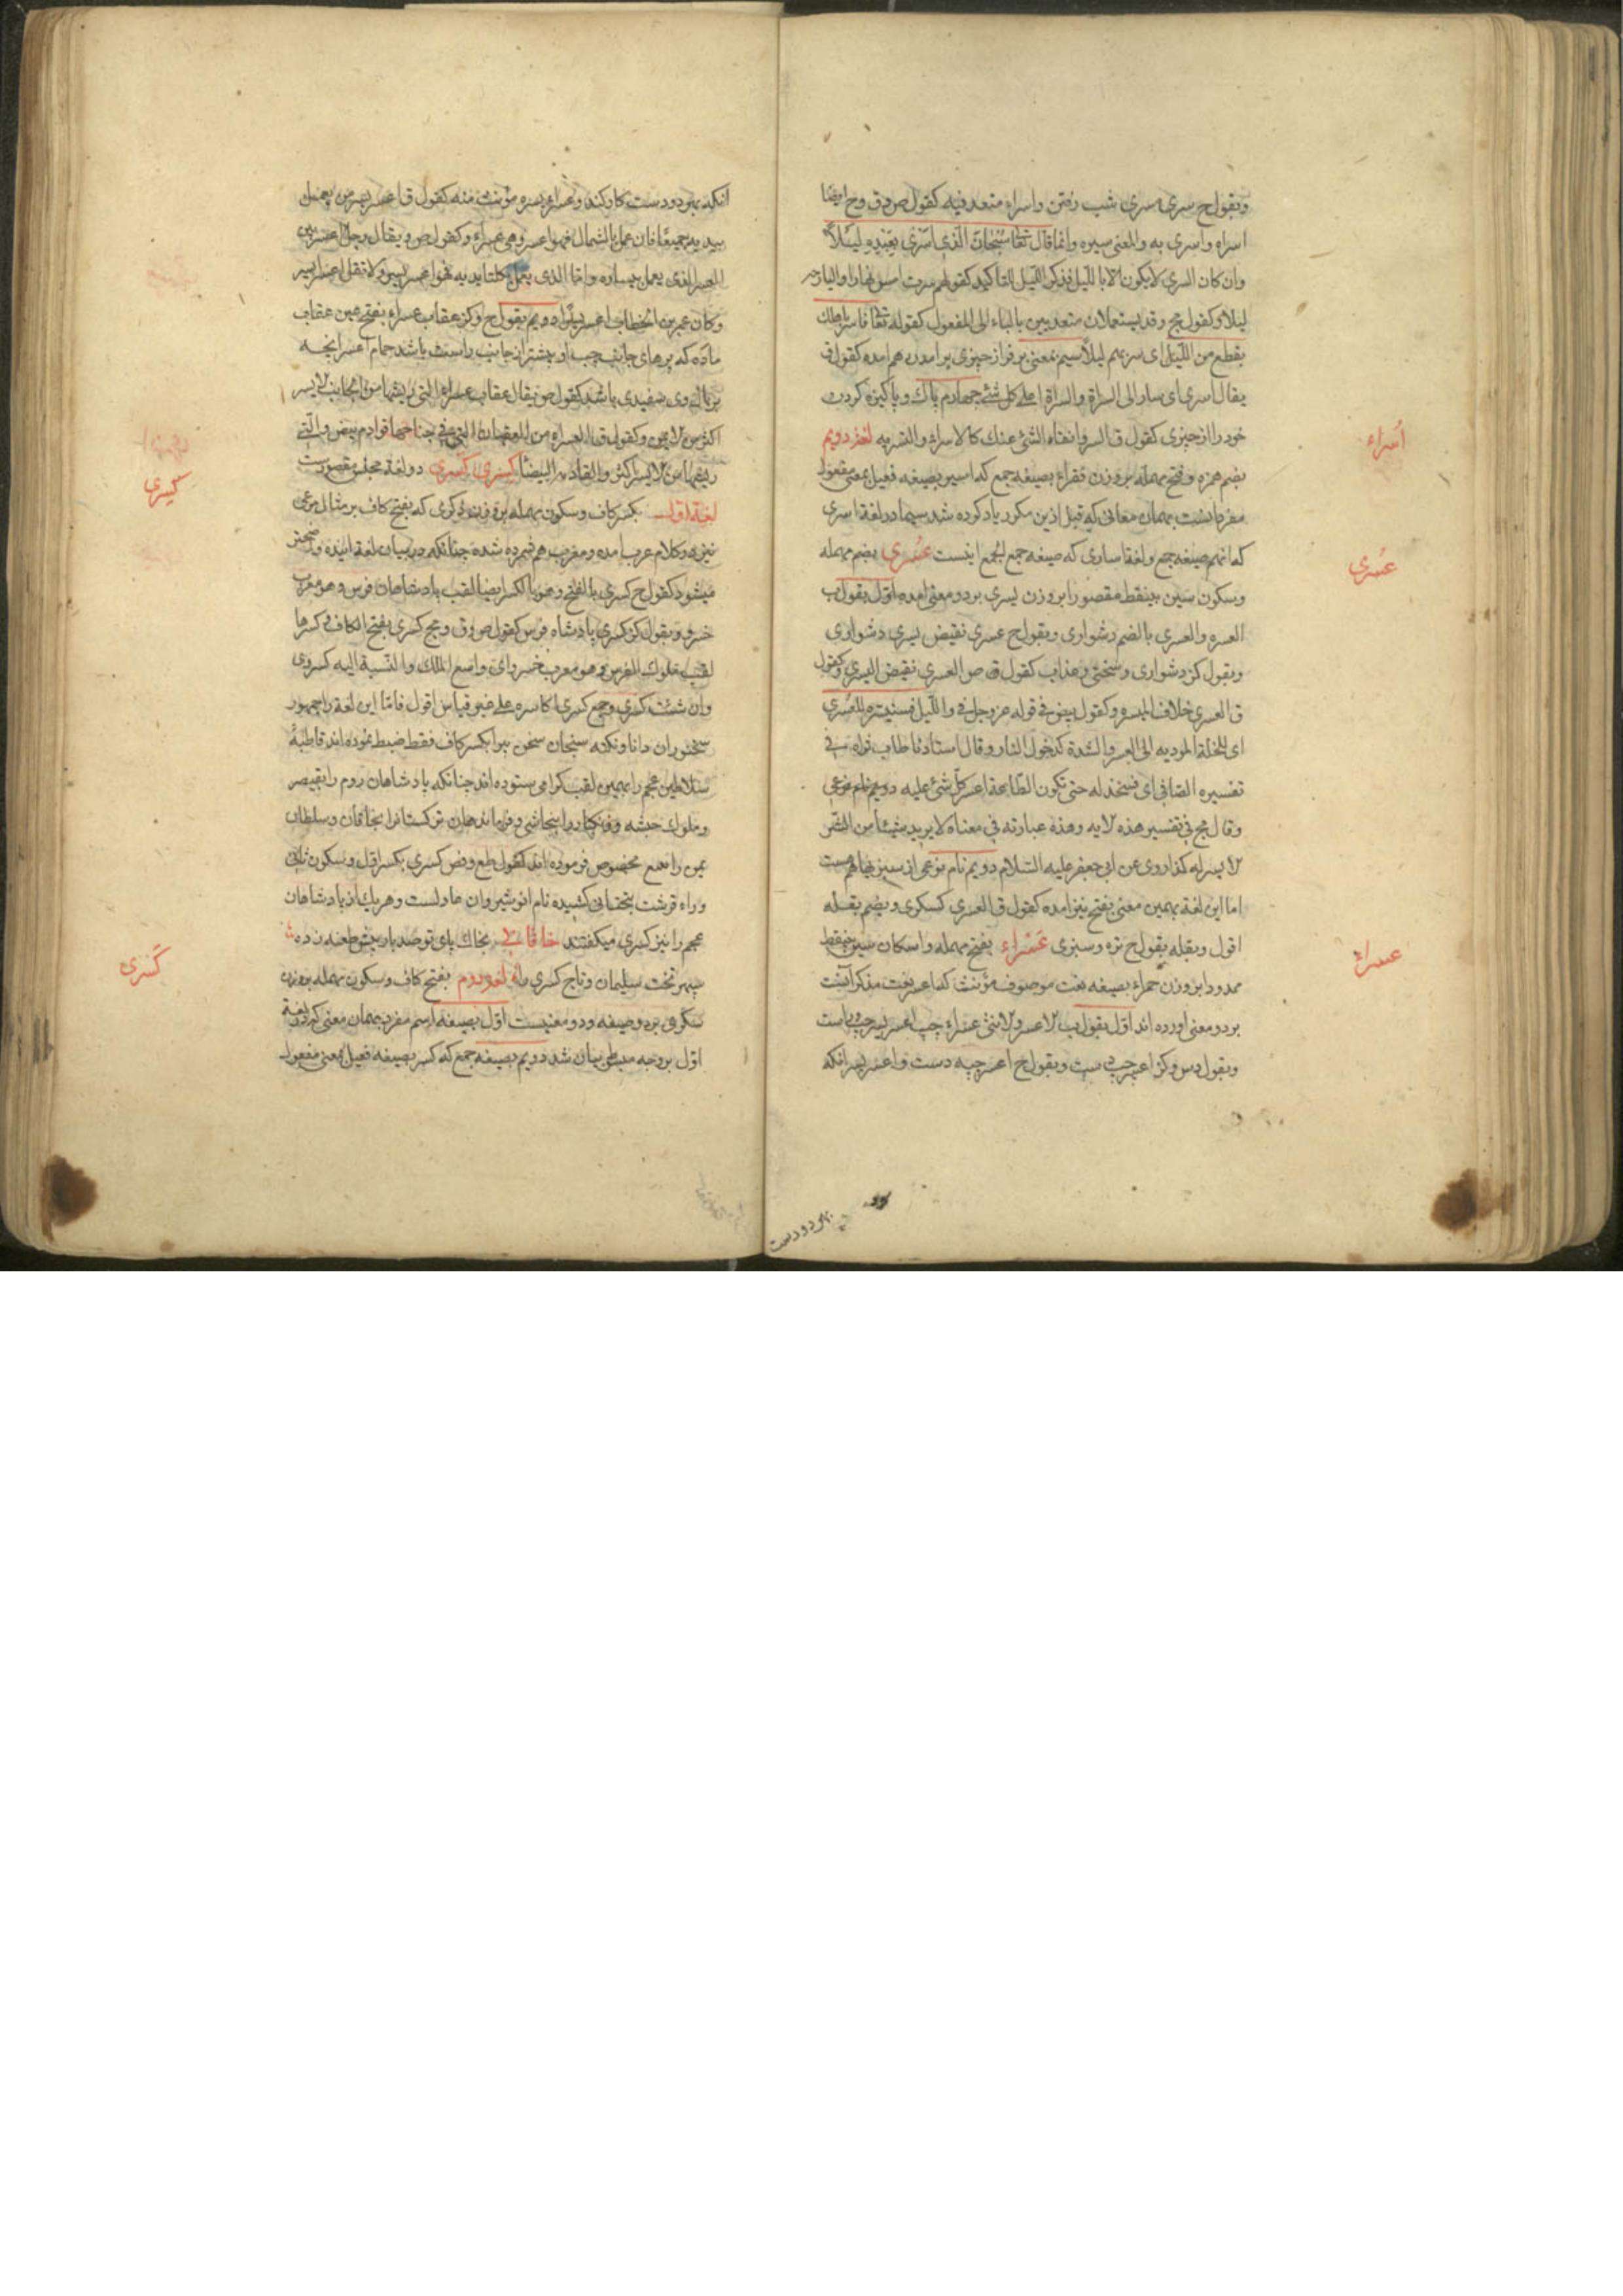 وبقول ح سری سری شب رفتن واسراء متعد فیه کقول ص وق وح ایضا
اسراه واسری به والمعنی سیره وانما قال تعا سُبْحَانَ الَّذِی اَسْرَی بِعَبْدِهِ لَیْلاً
وان کان السری لایکون الا باللیل فذکر اللیل للتاکید کقولهم سرت امس نهارا والبارحه
لیلا وکقول مج وقد یستعملان متعدیین بالباء الی المفعول کقوله تعا فاسر باهلک
بقطع من اللیل ای سر بهم لیلا سیم بمعنی بر فراز چیزی برامدن هم امده کقول ق
یقال اسری ای سار الی السراة والسراة اعلی کل شئ چهارم پاک و پاکیزه کردن
خود را از چیزی کقول ق السرو انقاه الشئ عنک کالاسراء والتسریه لغة دویم
اُسراء
بضم همزه وفتح مهمله بر وزن فقراء بصیغه جمع که اسیر بصیغه فعیل بمعنی مفعول
مفرد انست بهمان معانی که قبل ازین مکرر یاد کرده شد سیما در لغة اسری
که انهم صیغه جمع ولغة اساری که صیغه جمع الجمع اینست عُسْری بضم مهمله
عُسری
وسکون سین بینقط مقصورا بر وزن یسری بر دو معنی امده اول بقول ب
العسره والعسری بالضم دشواری وبقول ح عسری نقیض یسری دشواری
وبقول کز دشواری وسختی وعذاب کقول ق ص العسری نقیض الیسری وکقول
ق العسری خلاف المیسره وکقول بیض فی قوله عز وجل فی واللیل فسنیسره للعسری
ای للخلة المودیه الی العسر والشدة کدخول النار وقال استادنا طاب ثراه فی
تفسیره الصافی ای فسنخذله حتی تکون الطاعة اعسر کل شئ علیه
وقال مج فی تفسیر هذه الایه وهذه عبارته فی معناه لا یرید شیئا من الشر
الا یسر له کذا روی عن ابی جعفر علیه السلام دویم نام نوعی از سبزیها هست
اما این لغة بهمین معنی بفتح نیز امده کقول ق العسری کسکری ویضم بقله
اقول وبقله بقول ح تره وسبزی عَسْراء بفتح مهمله واسکان سین بینقط
عسراء
ممدودا بر وزن حمراء بصیغه نعت موصوف مؤنث که اعسر نعت مذکر انست
بر دو معنی اورده اند اول بقول ب الاعسر والانثی عسراء چپ اعسر یسر چپ راست
وبقول دس وکز اعسر چپ دست وبقول ح اعسر چپه دست واعسر یسر انکه
بهر دو دست
انکه بهر دو دست کار کند وعسراء یسره مؤنث منه کقول ق اعسر یسر من یعمل
بیدیه جمیعا فان عمل بالشمال فهو اعسر وهی عسراء وکقول ص ویقال رجل اعسر بین
العسر الذی یعمل بیساره واما الذی یعمل بکلتا یدیه فهو اعسر یسر ولا تقل اعسر ایسر
وکان عمر بن الخطاب اعسر یسرا دویم بقول ح وکز عقاب عسراء بفتح عین عقاب
ماده که پرهای جانب چپ او بیشتر از جانب راست باشد حمام اعسر انچه
بر بال وی سفیدی باشد کقول ص یقال عقاب عسراء التی ریشها من الجانب الایسر
اکثر من الایمن وکقول ق العسراء من العقبان التی فی جناحها قوادم بیض والتی
ریشها من الایسر اکثر والقادمة البیضا کِسْری کَسْری دو لغة مقصورست
کِسری
لغة اول بکسر کاف وسکون مهمله بر وزن ذکری که بفتح کاف بر مثال مرعی
نیز در کلام عرب امده ومعرب هم شمرده شده چنانکه در بیان لغة اینده واضحتر
میشود کقول ح کسری بالفتح وهو بالکسر ایضا لقب پادشاهان فرس وهو معرب
خسرو وبقول کز کسری پادشاه فرس کقول ص وق ومج کسری بفتح الکاف وکسرها
لقب ملوک الفرس وهو معرب خسرو ای واسع الملک والنسبة الیه کسروی
وان شئت کسری وجمع کسری اکاسره علی غیر قیاس اقول فاما این لغة را جمهور
سخنوران دانا ونکته سنجان سخن پیرا بکسر کاف فقط ضبط نموده اند قاطبةً
سلاطین عجم را بهمین لقب گرامی ستوده اند چنانکه پادشاهان روم را بقیصر
وملوک حبشه وفرنگ را بنجاشی وفرمان دهان ترکستانرا بخاقان وسلطان
یمن را بتبع مخصوص فرموده اند کقول طع وفص کسری بکسر اول وسکون ثانی
وراء قرشت بتحتانی کشیده نام انوشیروان عادلست وهر یک از پادشاهان
عجم را نیز کسری میگفتند خاقانی بخاک پای تو صد بار بیش طعنه زده
سپهر تخت سلیمان وتاج کسری را لغة دوم بفتح کاف وسکون مهمله بر وزن
کَسْری
سکری بر دو صیغه ودو معنیست اول بصیغه اسم مفرد بهمان معنی که در لغة
اول بر وجه مبسط بیان شد دویم بصیغه جمع که کسیر بصیغه فعیل بمعنی مفعول